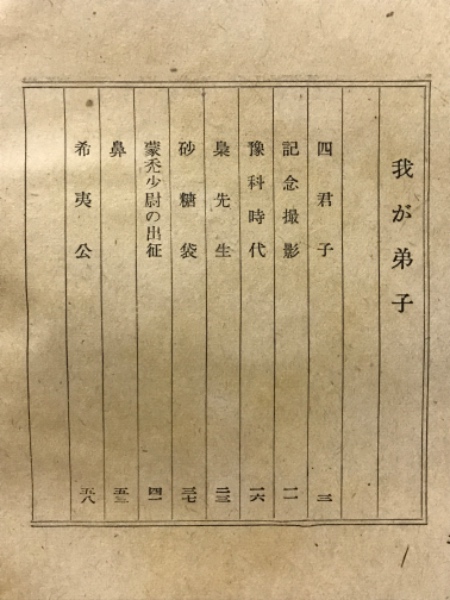 我が弟子
四君子 三
記念撮影 一一
豫科時代 一六
梟先生 二三
砂糖袋 三七
蒙禿少尉の出征 四一
鼻 五三
希夷公 五八